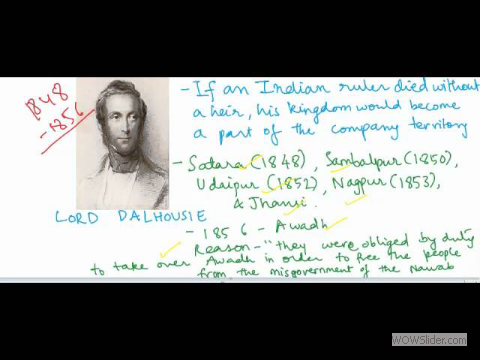 1848
-1856
- If an Indian ruler died without
a heir, his kingdom would become
a part of the company territory
- Satara (1848), Sambalpur (1850),
Udaipur (1852), Nagpur (1853),
& Jhansi.
LORD DALHOUSIE
- 1856 - Awadh
Reason - "they were obliged by duty
to take over Awadh in order to free the people
from the misgovernment of the Nawab
WOWSlider.com